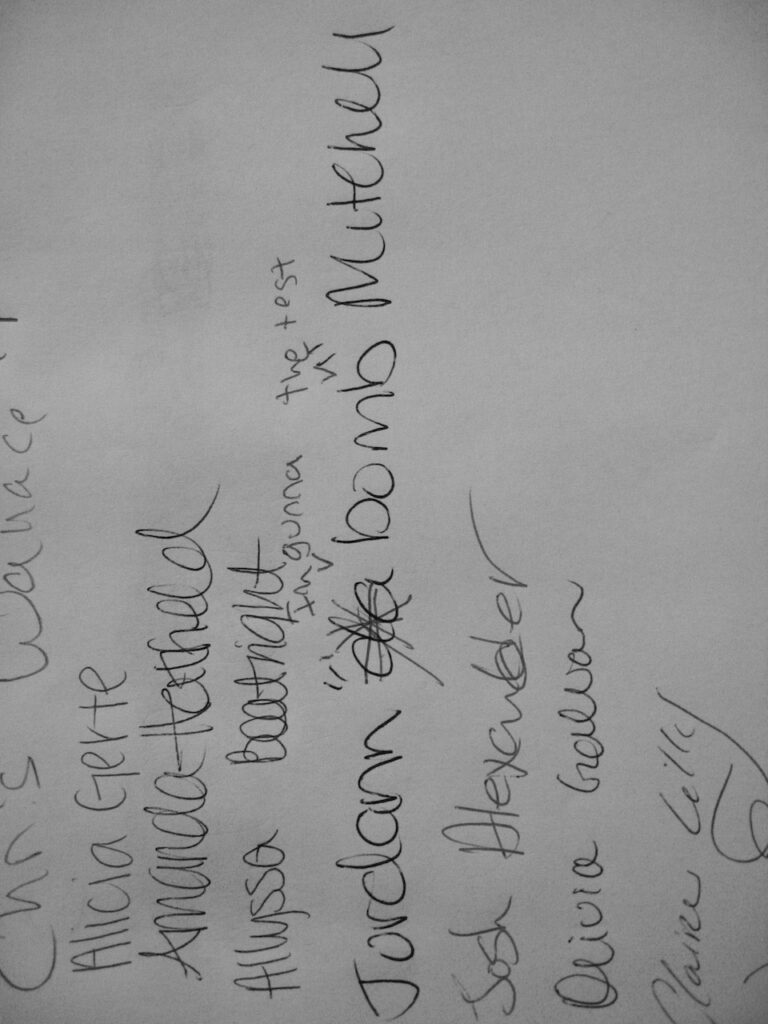 Chris Wallace
Alicia Gerte
Amanda Hatfield
Allyssa Boatright
I'm gunna the test
Jordann " bomb Mitchell
Josh Alexander
Olivia Galvan
Claire